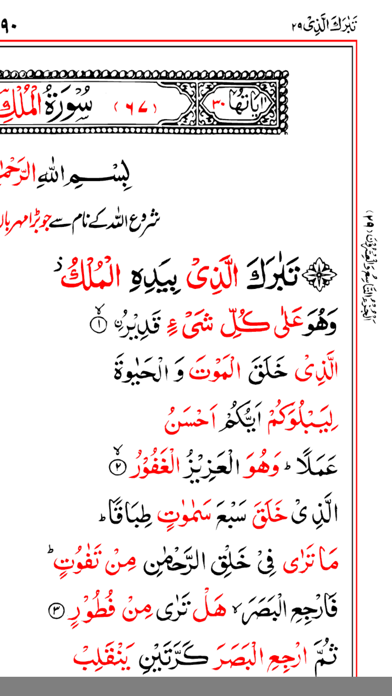 تَبٰرَكَ الَّذِىْ ٢٩
٩٠
اٰيَاتُهَا ٣٠
(٦٧)
سُوْرَةُ الْمُلْكِ
بِسْمِ اللّٰهِ الرَّحْمٰ
شروع اللہ کے نام سے جو بڑا مہربا
تَبٰرَكَ الَّذِىْ بِيَدِهِ الْمُلْكُ ز
وَهُوَ عَلٰى كُلِّ شَىْءٍ قَدِيْرُۨ ۙ ١
الَّذِىْ خَلَقَ الْمَوْتَ وَ الْحَيٰوةَ
لِيَبْلُوَكُمْ اَيُّكُمْ اَحْسَنُ
عَمَلًا ؕ وَهُوَ الْعَزِيْزُ الْغَفُوْرُ ۙ ٢
الَّذِىْ خَلَقَ سَبْعَ سَمٰوٰتٍ طِبَاقًا ؕ
مَا تَرٰى فِىْ خَلْقِ الرَّحْمٰنِ مِنْ تَفٰوُتٍ ؕ
فَارْجِعِ الْبَصَرَ ۙ هَلْ تَرٰى مِنْ فُطُوْرٍ ٣
ثُمَّ ارْجِعِ الْبَصَرَ كَرَّتَيْنِ يَنْقَلِبْ